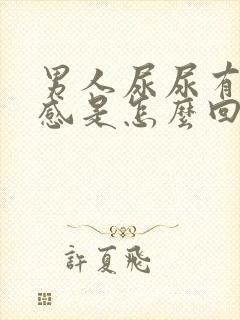 男人尿尿有
感是怎麼回
許夏飛